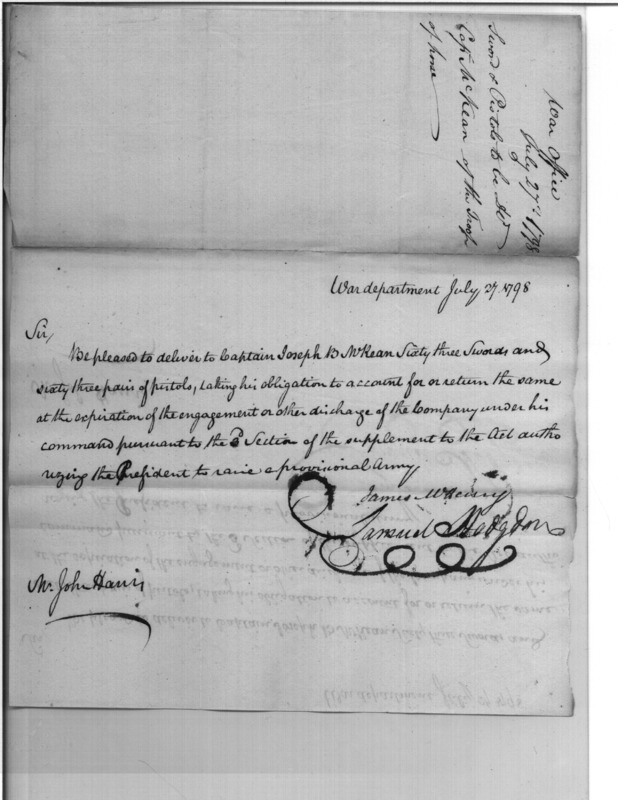 War Office
July 27th 1798
Sword & Pistols to be dd
Capt McKean of the Troop
of horse
War department July 27. 1798
Sir,
Be pleased to deliver to Captain Joseph B McKean Sixty three Swords and
sixty three pairs of pistols, taking his obligation to account for or return the same
at the expiration of the engagement or other discharge of the Company under his
command pursuant to the Section of the supplement to the Act autho
rizing the President to raise a provisional Army
James McHenry
Samuel Hodgdon
Mr. John Harris